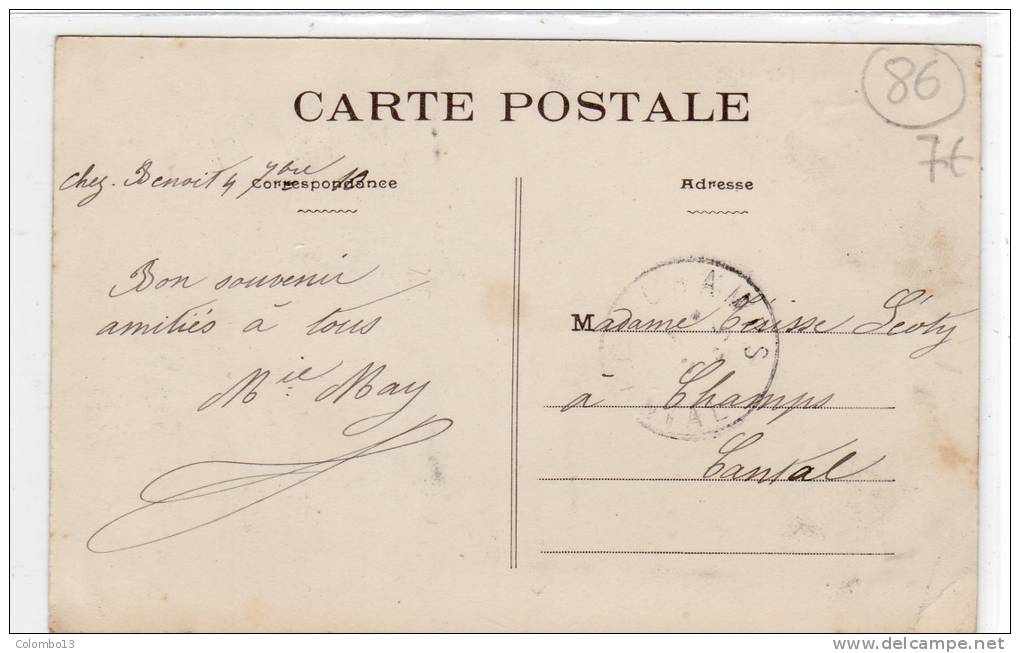 CARTE POSTALE
86
7€
chez Benoit 4 7bre 10
Correspondance
Adresse
Bon souvenir
amitiés à tous
Mie May
CHAMPS
Madame
à Champs
Cantal
Colombo13
www.delcampe.net